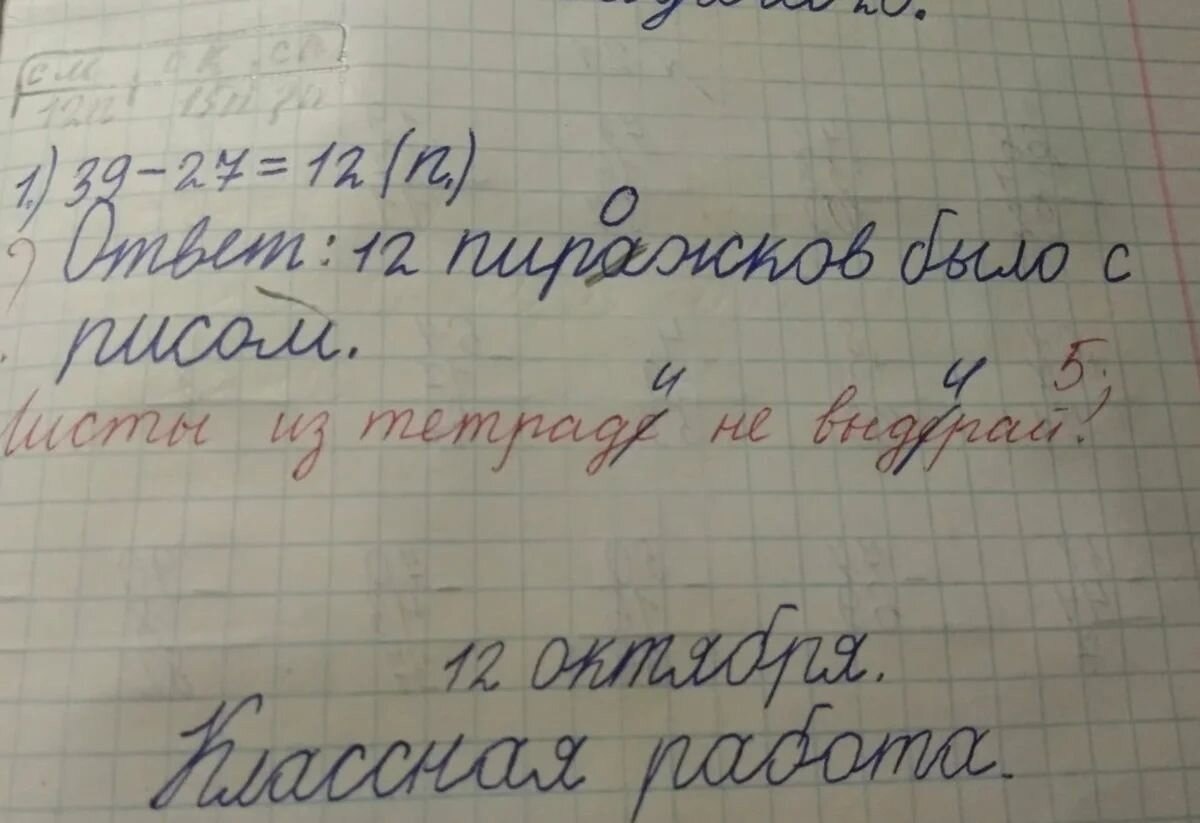 1.) 39-27=12 (п.)
Ответ: 12 пирожков было с
рисом.
5;
Листы из тетради не выдирай!
12 октября.
Классная работа.